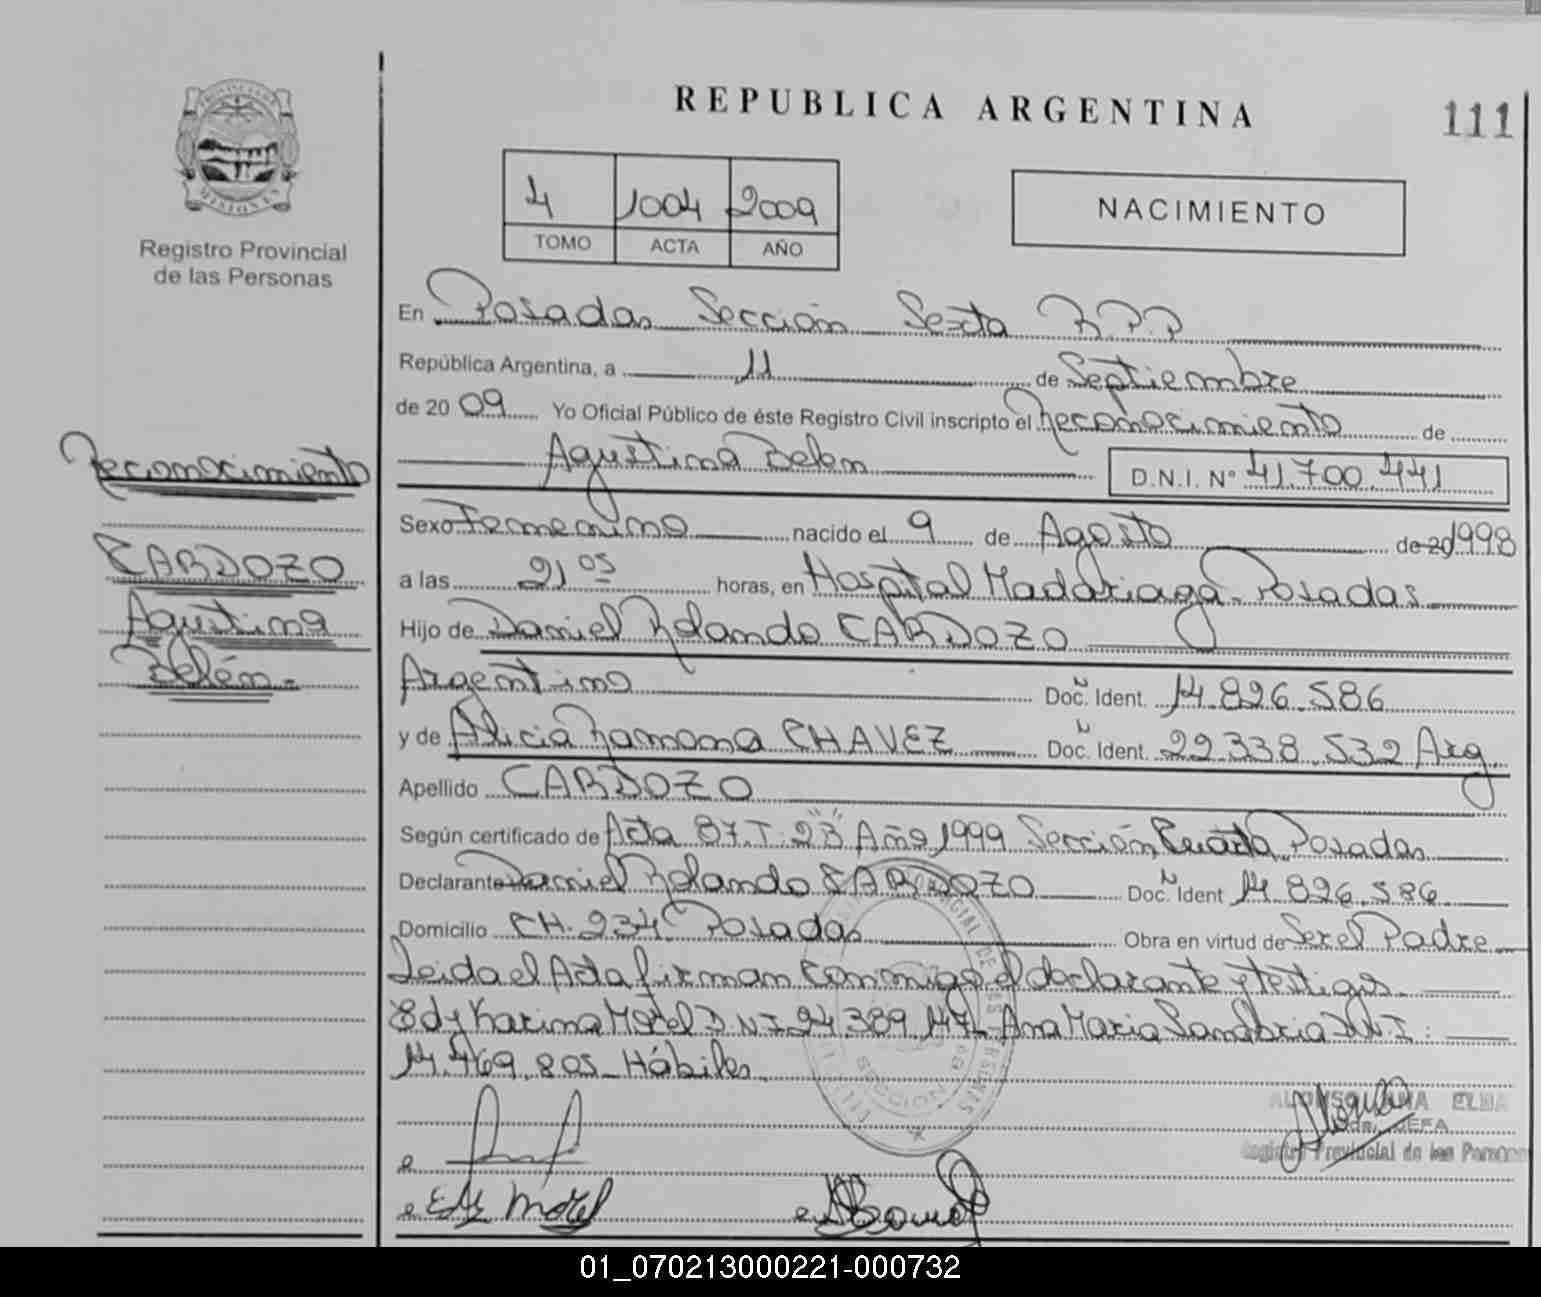 REPUBLICA ARGENTINA
111
Registro Provincial
de las Personas
4 1004 2009
TOMO ACTA AÑO
NACIMIENTO
En Posadas Sección Sexta R.P.P
República Argentina, a 11 de Septiembre
de 2009 Yo Oficial Público de éste Registro Civil inscripto el Reconocimiento de
Agustina Belen D.N.I. Nº 41.700.441
Reconocimiento
CARDOZO
Agustina
Belén.-
Sexo Femenino nacido el 9 de Agosto de 20 1998
a las 21 05 horas, en Hospital Madariaga - Posadas
Hijo de Daniel Rolando CARDOZO
Argentino Doc. Ident. 14.826.586
y de Alicia Ramona CHAVEZ Doc. Ident. 22.338.532 Arg.
Apellido CARDOZO
Según certificado de Acta 87.T: 2B Año 1999 Sección Cuarta Posadas
Declarante Daniel Rolando CARDOZO Doc. Ident 14.826.586
Domicilio CH. 234 Posadas Obra en virtud de Ser el Padre
Leida el Acta firman conmigo el declarante y testigos
Edy Karina Motel D.N.I 24.389.147- Ana Maria Sanabria D.N.I:
14.469.805- Hábiles
ALONSO ANA ELBA
JEFA
Registro Provincial de las Personas
01_070213000221-000732